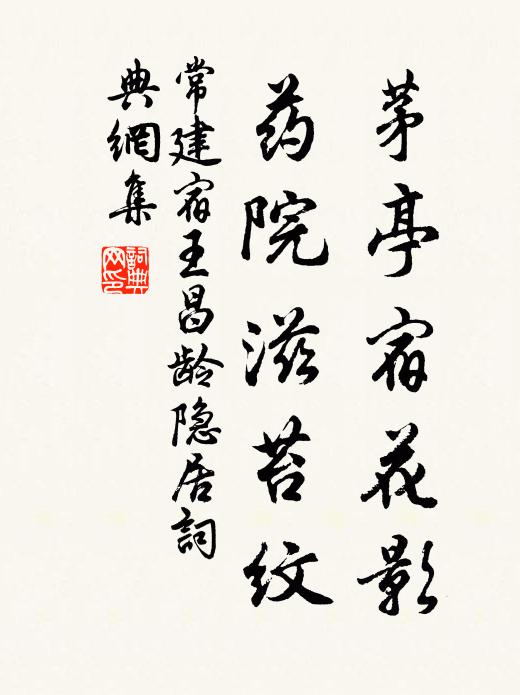 茅亭宿花影
药院滋苔纹
常建宿王昌龄隐居詞
典網集
詞典网印